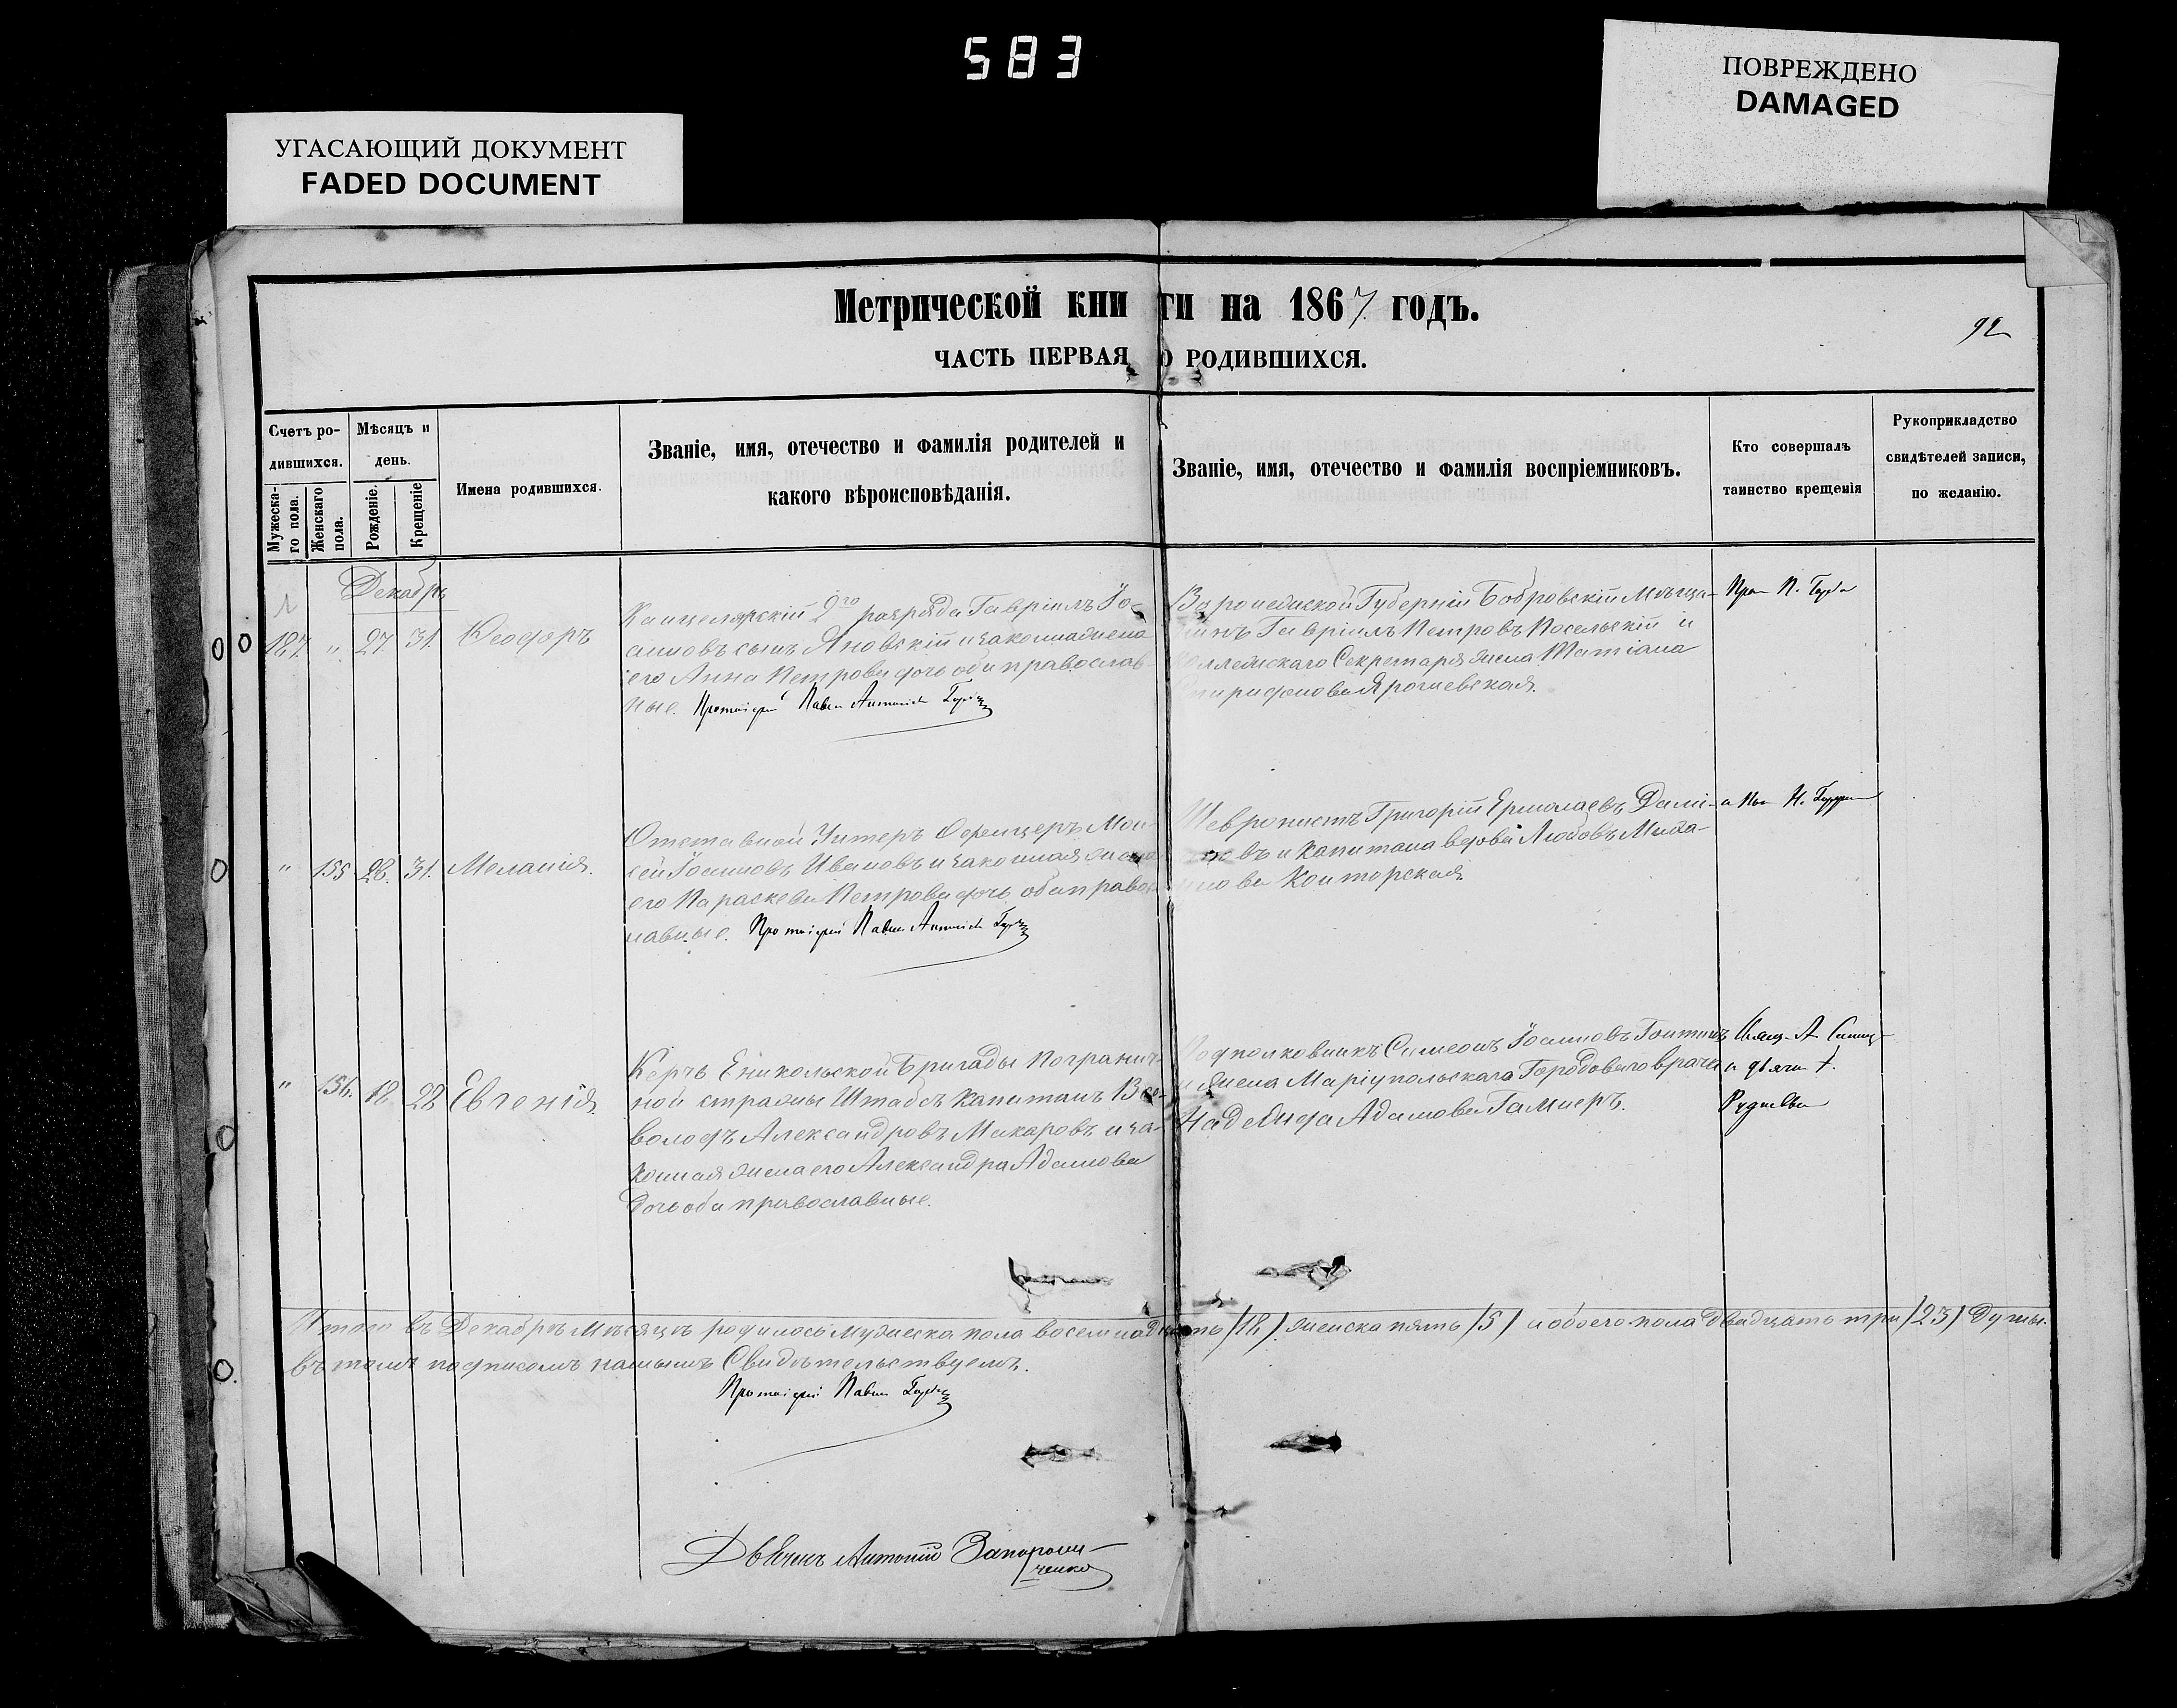 583
УГАСАЮЩИЙ ДОКУМЕНТ
FADED DOCUMENT
ПОВРЕЖДЕНО
DAMAGED
Метрической книги на 1867 годъ.
92
ЧАСТЬ ПЕРВАЯ О РОДИВШИХСЯ.
Счетъ родившихся.
Мужескаго пола.
Женскаго пола.
Мѣсяцъ и день.
Рожденіе.
Крещеніе
Имена родившихся.
Званіе, имя, отечество и фамилія родителей и
какого вѣроисповѣданія.
Званіе, имя, отечество и фамилія воспріемниковъ.
Кто совершалъ
таинство крещенія
Рукоприкладство
свидѣтелей записи,
по желанію.
Декабрь
187. " 27. 31. Ѳеодоръ
Канцелярскій 2го разряда Гавріилъ Іо-
анновъ сынъ Яновскій и законная жена
его Анна Петрова дочь оба православ-
ные. Протоіерей Павелъ
Воронежской Губерніи Бобровскій Мѣща-
нинъ Гавріилъ Петровъ Посельскій и
Коллежскаго Секретаря жена Татіана
Спиридонова
Прот. П.
" 155 28. 31. Меланія.
Отставной Унтеръ Офицеръ Мои-
сей Іоанновъ Ивановъ и законная жена
его Параскева Петрова дочь, оба правос-
лавные. Протоіерей Павелъ
Шевронистъ Григорій Ермолаевъ
и Капитана вдова Любовь
Конторская.
" 156. 18. 28 Евгенія.
Керчь Еникольской Бригады Погранич-
ной стражи Штабсъ Капитанъ Все-
володъ Александровъ Макаровъ и за-
конная жена его Александра Адамова
дочь оба православные.
Подполковникъ Симеонъ Іоанновъ
и жена Маріупольскаго Городоваго врача
Надежда Адамова Гамперъ.
Свящ. А.
Итого въ Декабрѣ Мѣсяцѣ родилось мужеска пола восемнадцать /18/. женска пять /5/ и обоего пола двадцать три /23/ души.
въ томъ подписомъ нашимъ Свидѣтельствуемъ.
Протоіерей Павелъ
Дьячекъ Антоній Запорож-
ченко